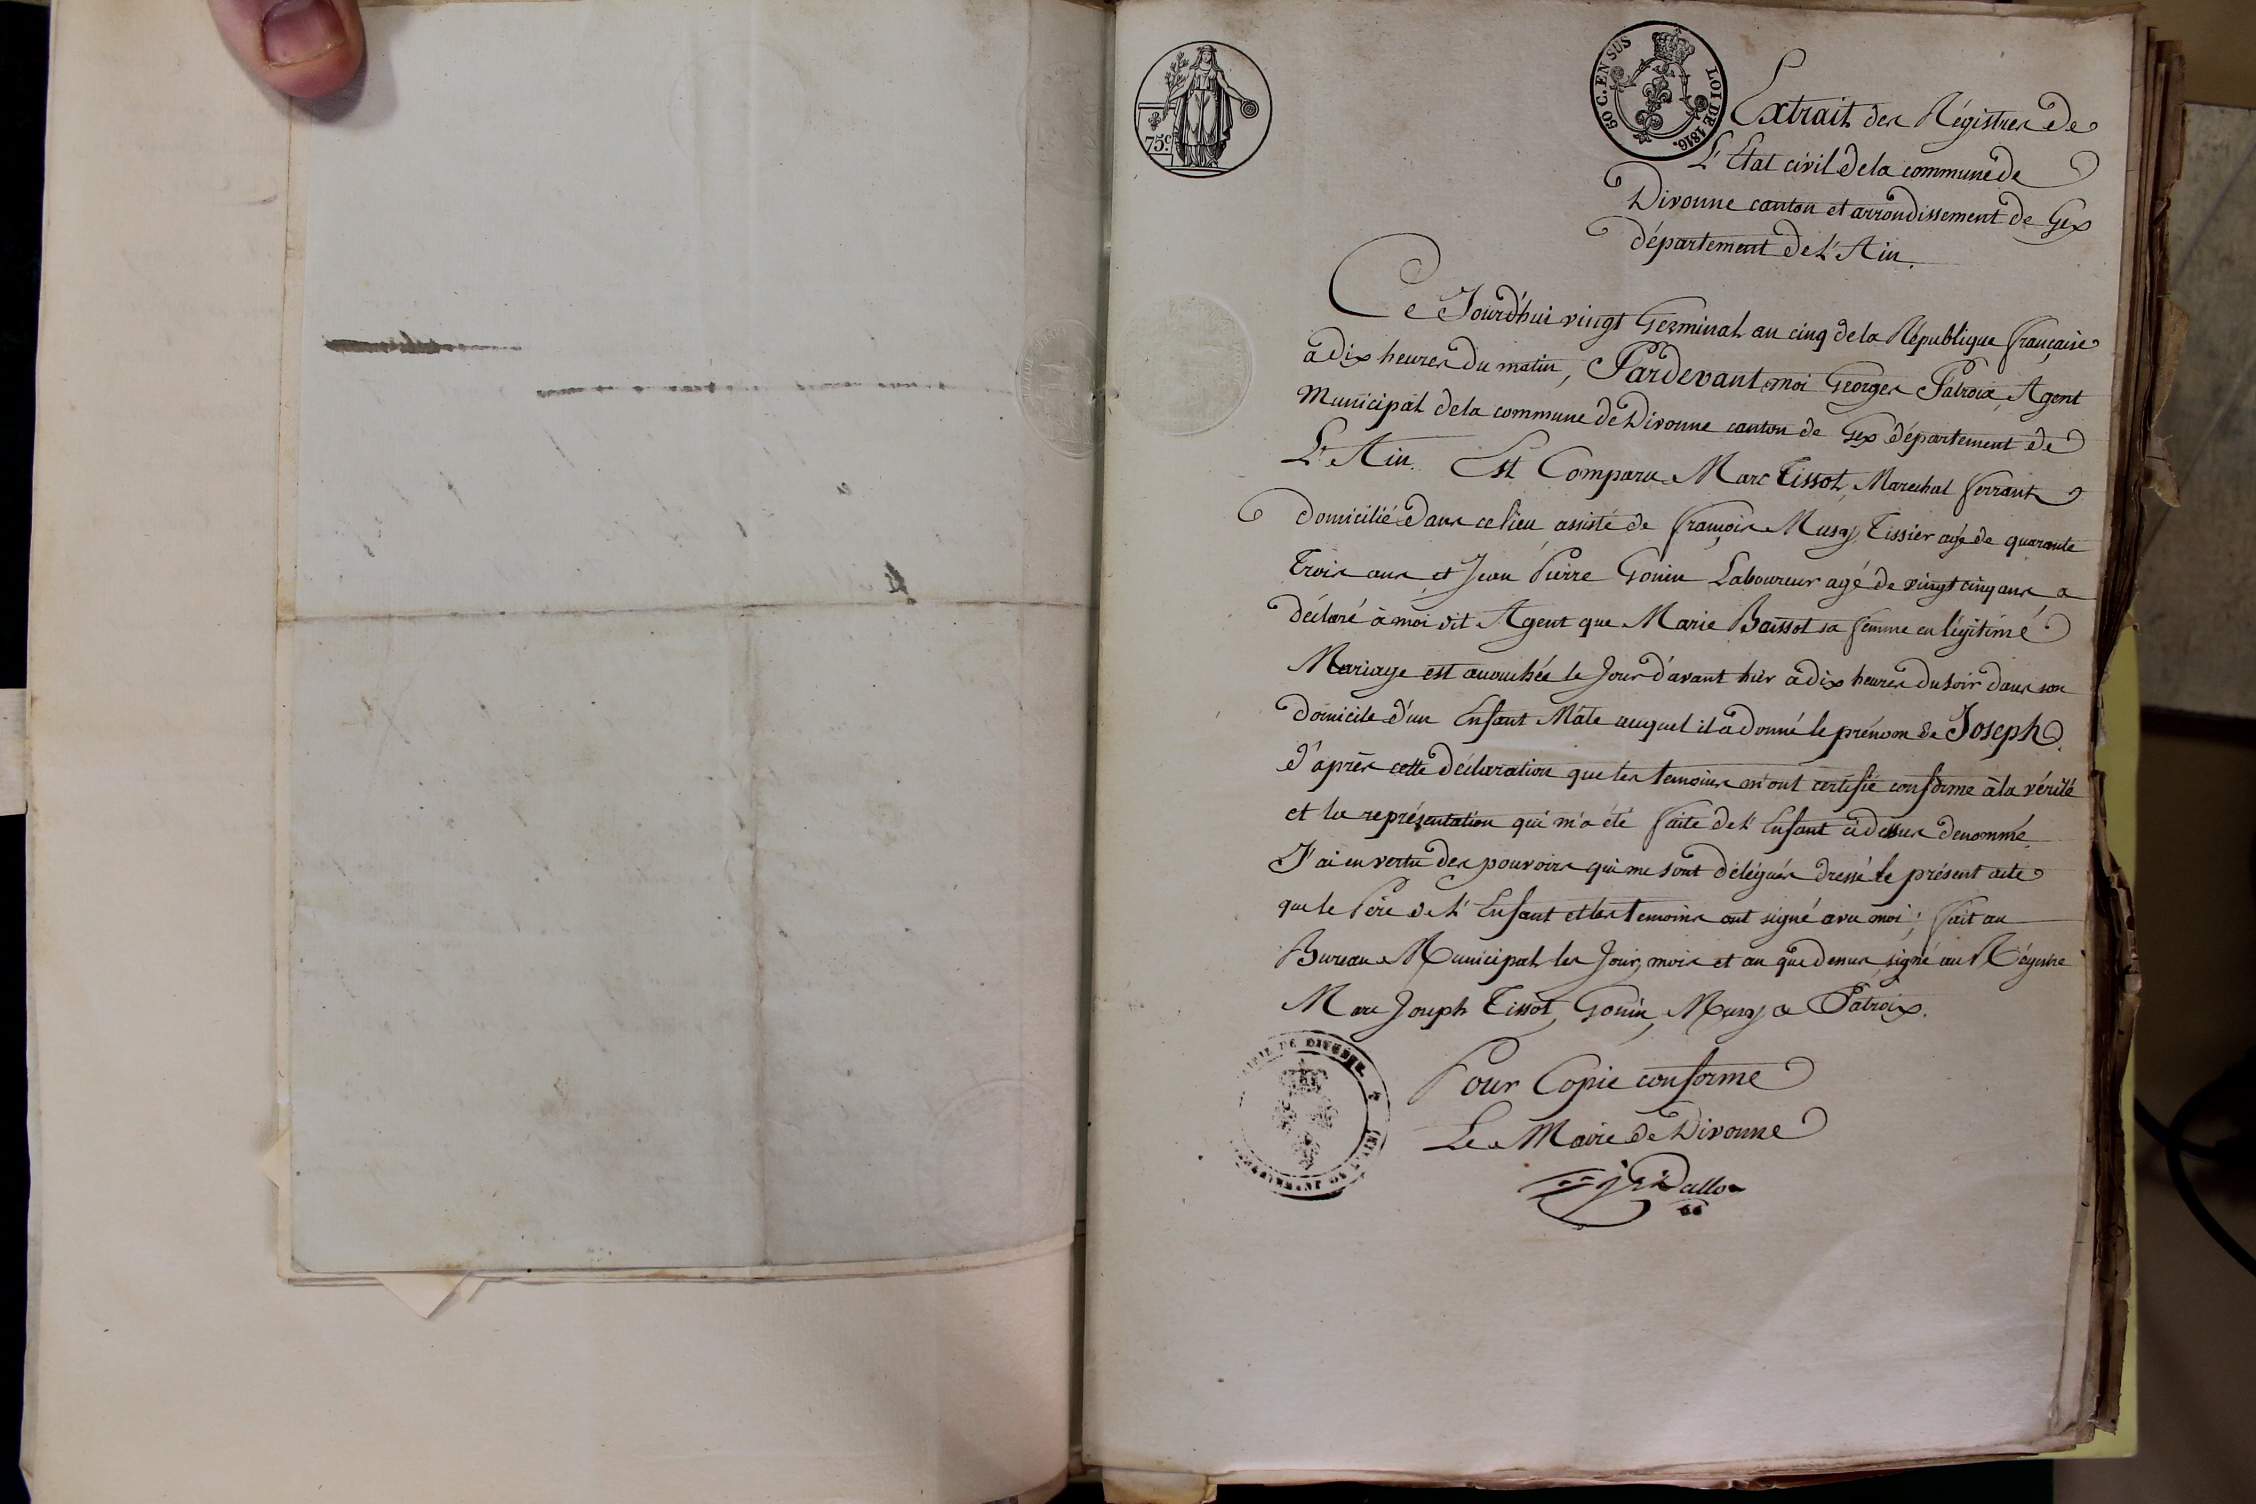 50 C. EN SUS
LOI DE 1816.
75.c
Extrait des Régistres de
L'Etat civil de la commune de
Divonne canton et arrondissement de Gex
département de L'Ain.
Ce Jourd'hui vingt Germinal an cinq de la République française
à dix heures du matin, Pardevant moi Georges Patroix, Agent
Municipal de la commune de Divonne canton de Gex département de
L'Ain. Est Comparu Marc Tissot, Marechal ferrant
domicilié dans ce lieu, assisté de françois Musy, Tissier agé de quarante
Trois ans, et Jean Pierre Gonin Laboureur agé de vingt cinq ans, a
déclaré à moi dit Agent que Marie Baissot sa femme en légitimé
Mariage est accouchée le Jour d'avant hier à dix heures du soir dans son
domicile d'un Enfant Mâle auquel il a donné le prénom de Joseph.
d'après cette déclaration que les temoins m'ont certifié conforme à la vérité
et la représentation qui m'a été faite de l'Enfant ci dessus denommé.
J'ai en vertu des pouvoirs qui me sont délégués dressé le présent acte
que le Père de L'Enfant et les temoins ont signé avec moi; fait au
Bureau Municipal les Jour, mois et an que dessus, signé au Régistre
Marc Joseph Tissot, Gonin, Musy & Patroix.
Pour Copie conforme
Le Maire de Divonne